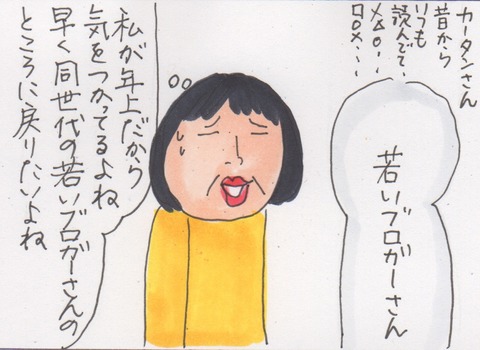 カータンさん
昔から
いつも
読んでて
×△○…
□○×…
若いブロガーさん
私が年上だから
気をつかってるよね
早く同世代の若いブロガーさんの
ところに戻りたいよね